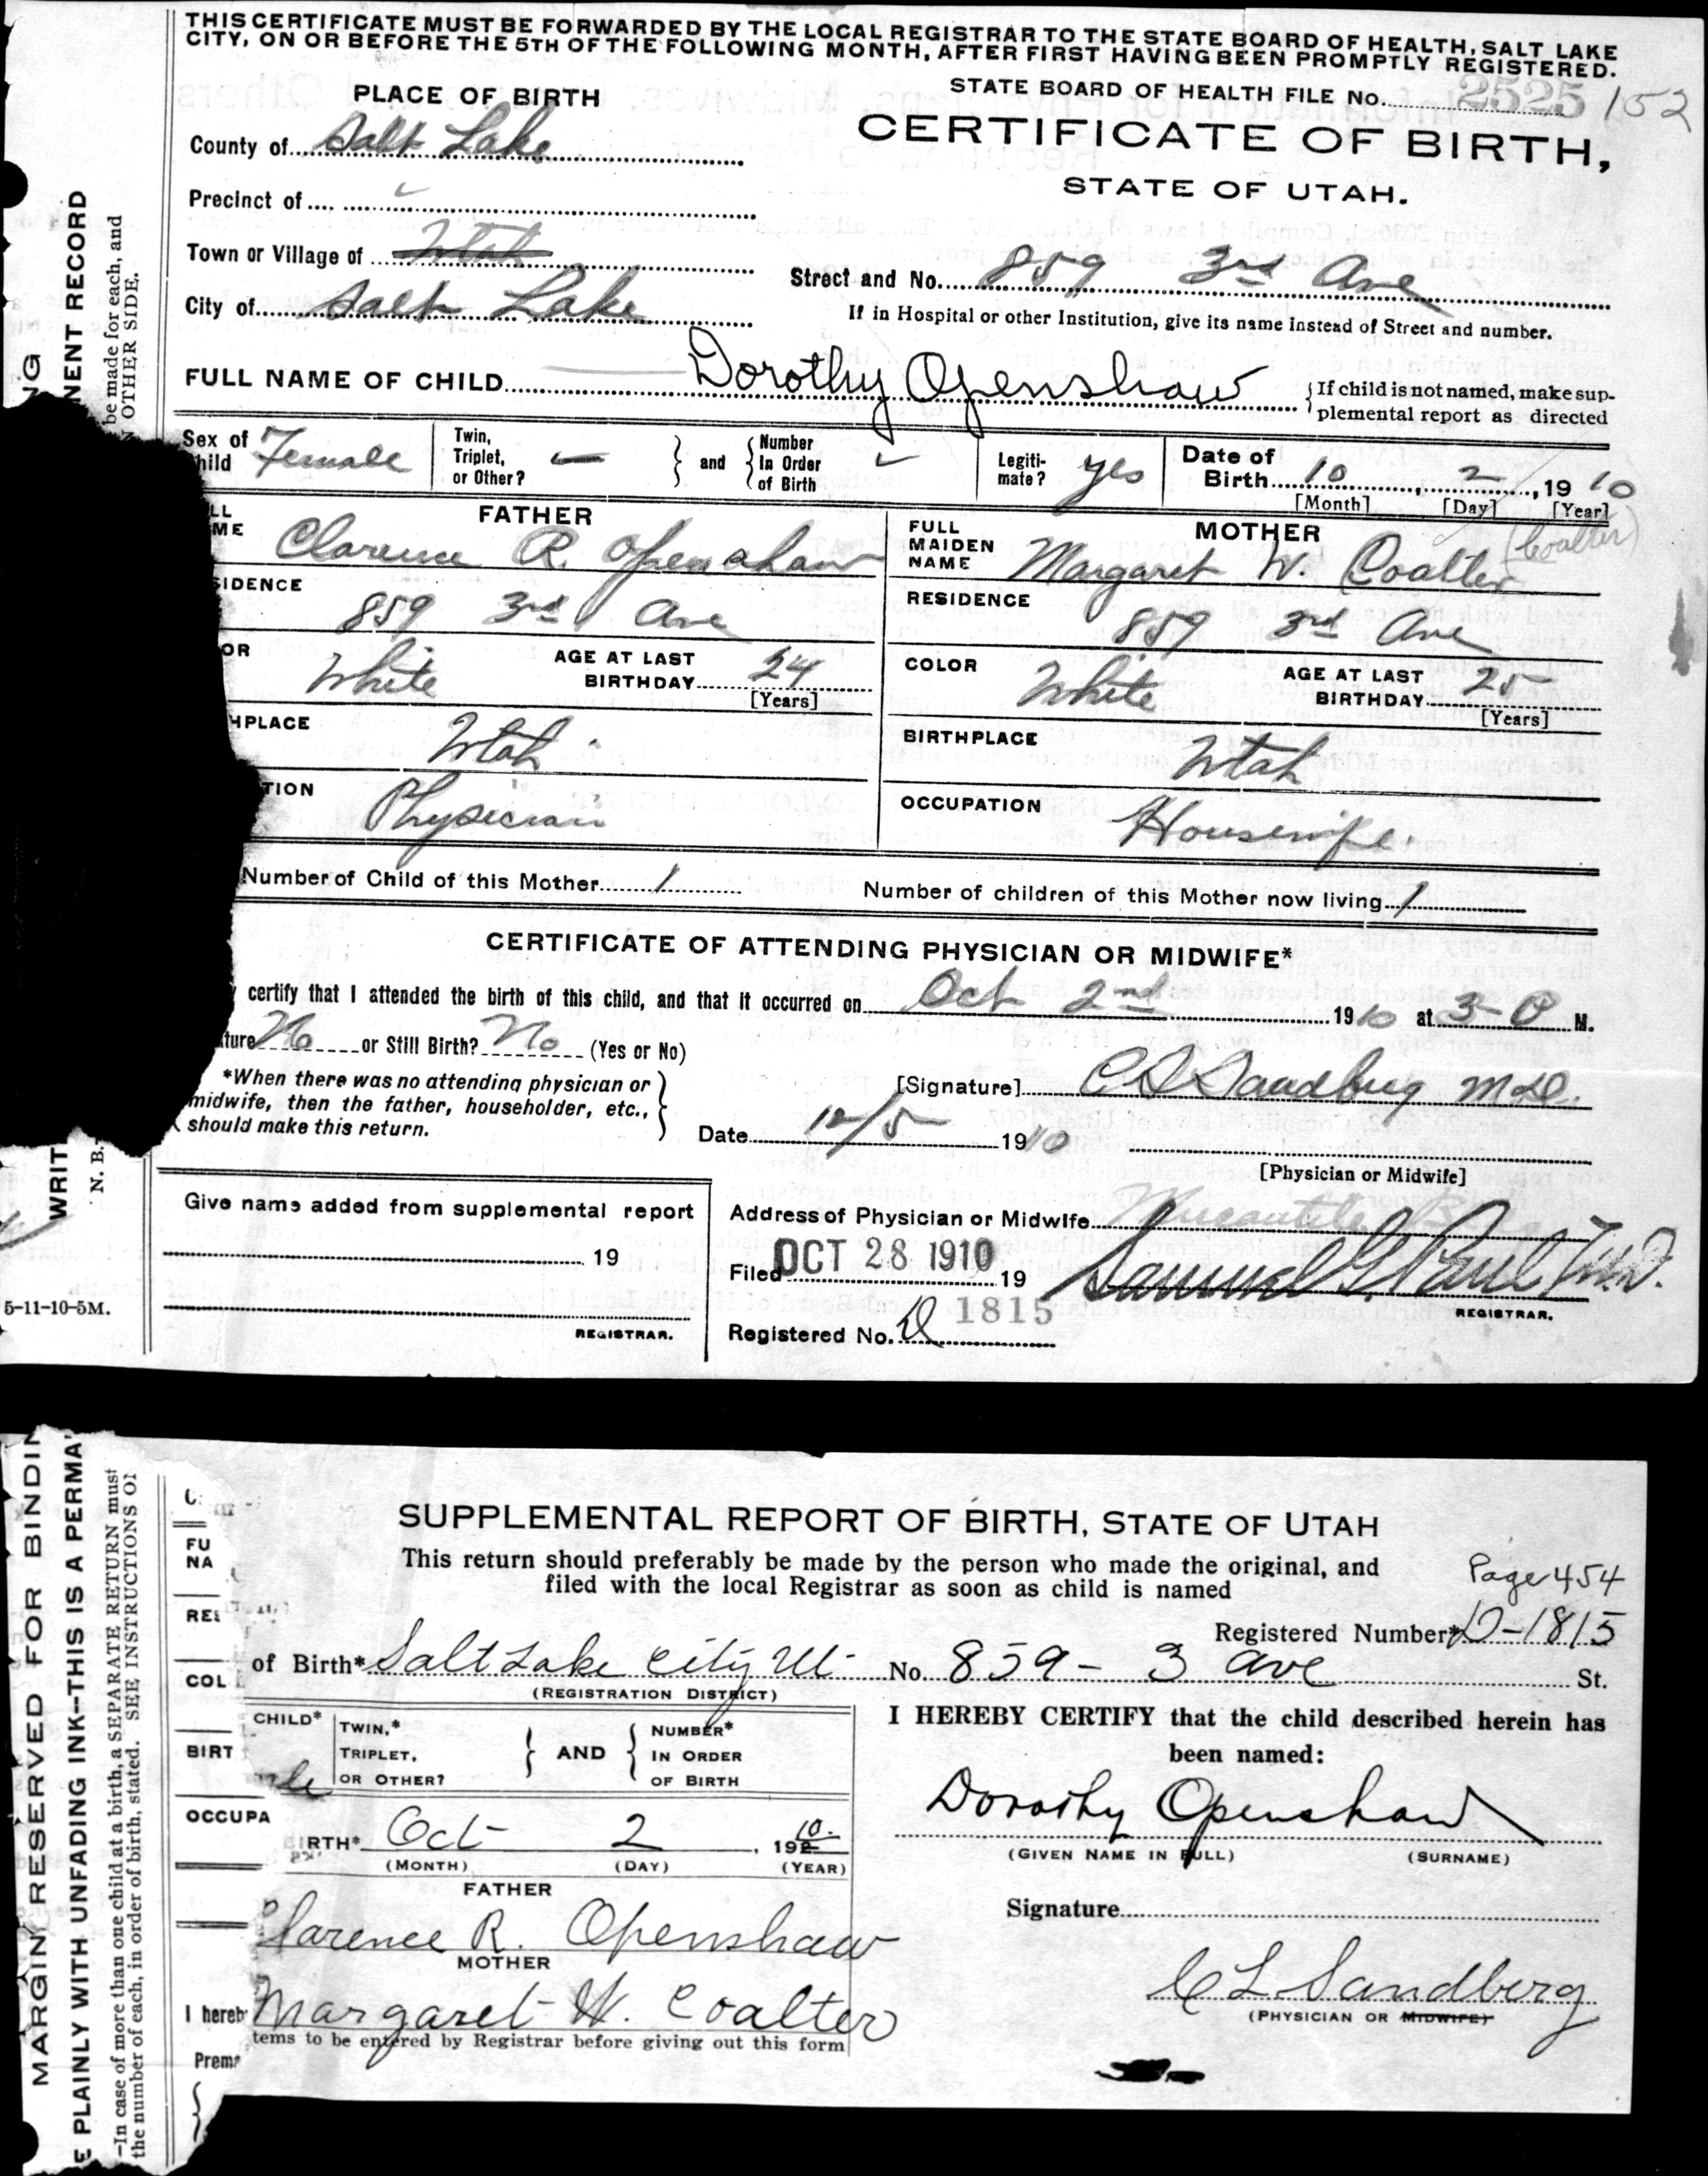 THIS CERTIFICATE MUST BE FORWARDED BY THE LOCAL REGISTRAR TO THE STATE BOARD OF HEALTH, SALT LAKE
CITY, ON OR BEFORE THE 5TH OF THE FOLLOWING MONTH, AFTER FIRST HAVING BEEN PROMPTLY REGISTERED.
STATE BOARD OF HEALTH FILE No. 2525 152
PLACE OF BIRTH
CERTIFICATE OF BIRTH,
STATE OF UTAH.
County of Salt Lake
Precinct of
Town or Village of Utah
City of Salt Lake
Street and No. 859 3rd Ave
If in Hospital or other Institution, give its name instead of Street and number.
FULL NAME OF CHILD Dorothy Openshaw
If child is not named, make sup-
plemental report as directed
Sex of Female
hild
Twin,
Triplet,
or Other?
and
Number
In Order
of Birth
Legiti-
mate? yes
Date of
Birth 10 2, 1910
[Month] [Day] [Year]
FATHER
LL
ME Clarence R. Openshaw
SIDENCE
859 3rd Ave
OR White
AGE AT LAST
BIRTHDAY 24
[Years]
HPLACE Utah
TION Physician
MOTHER
FULL
MAIDEN
NAME Margaret W. Coalter (Coalter)
RESIDENCE
859 3rd Ave
COLOR White
AGE AT LAST
BIRTHDAY 25
[Years]
BIRTHPLACE Utah
OCCUPATION Housewife
Number of Child of this Mother 1
Number of children of this Mother now living 1
CERTIFICATE OF ATTENDING PHYSICIAN OR MIDWIFE*
certify that I attended the birth of this child, and that it occurred on Oct 2nd 1910 at 3- P M.
ture No or Still Birth? No (Yes or No)
*When there was no attending physician or
midwife, then the father, householder, etc.,
should make this return.
[Signature] C L Sandberg M.D.
Date 10/5 1910
[Physician or Midwife]
Give name added from supplemental report
19
REGISTRAR.
Address of Physician or Midwife Mercantile
Filed OCT 28 1910 19
Samuel G. Paul M.D.
REGISTRAR.
Registered No. D 1815
5-11-10-5M.
NG
NENT RECORD
be made for each, and
N OTHER SIDE.
WRIT
N. B.
SUPPLEMENTAL REPORT OF BIRTH, STATE OF UTAH
This return should preferably be made by the person who made the original, and
filed with the local Registrar as soon as child is named
Page 454
Registered Number* D-1815
of Birth* Salt Lake City Ut- No. 859 - 3 Ave St.
(REGISTRATION DISTRICT)
CHILD*
TWIN,*
TRIPLET,
OR OTHER?
AND
NUMBER*
IN ORDER
OF BIRTH
ale
IRTH* Oct 2, 192 10.
(MONTH) (DAY) (YEAR)
FATHER
larence R. Openshaw
MOTHER
Margaret W. Coalter
tems to be entered by Registrar before giving out this form
I HEREBY CERTIFY that the child described herein has
been named:
Dorothy Openshaw
(GIVEN NAME IN FULL) (SURNAME)
Signature
C L Sandberg
(PHYSICIAN OR MIDWIFE)
FU
NA
RES
COL
BIRT
OCCUPA
I hereb
Prema
MARGIN RESERVED FOR BINDIN
E PLAINLY WITH UNFADING INK—THIS IS A PERMA
—In case of more than one child at a birth, a SEPARATE RETURN must
the number of each, in order of birth, stated. SEE INSTRUCTIONS OI